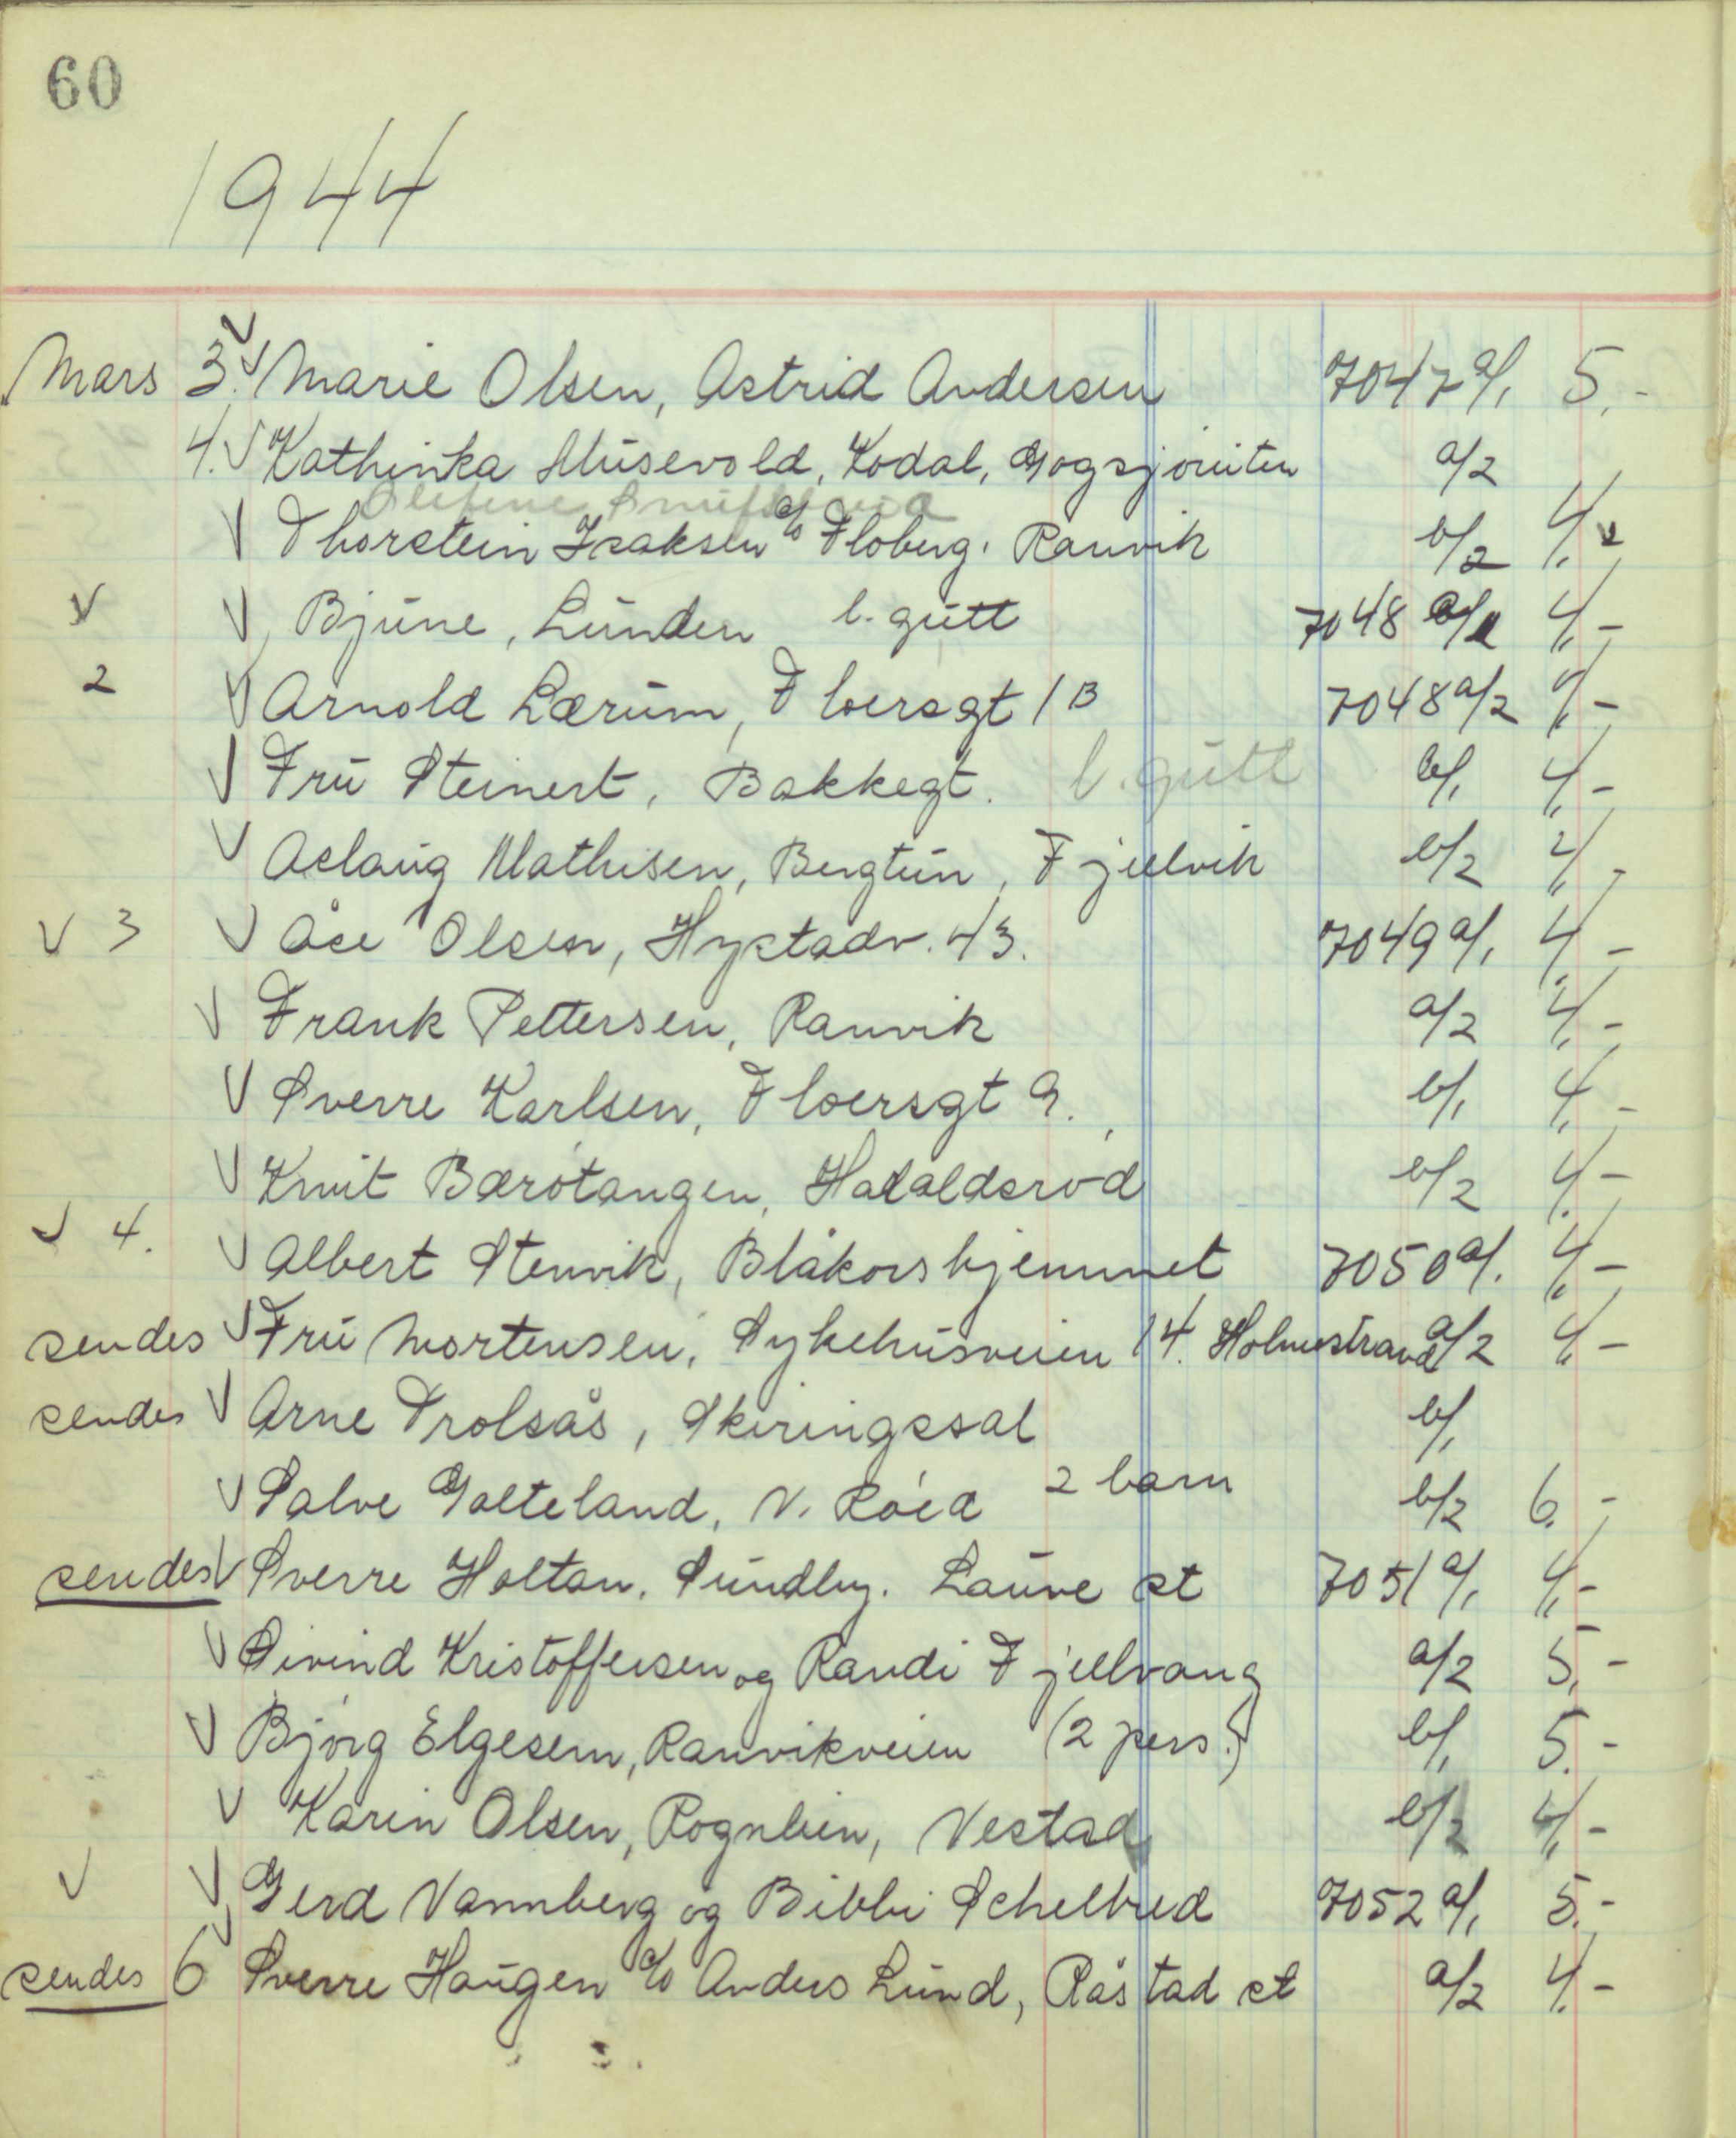 60
1944
Mars 3. Marie Olsen, Astrid Andersen 7047 a/1 5,-
4. Kathinka Musevold, Kodal, Gogsjøruten a/2
Olefine
Thorstein Isaksen c/o Floberg, Ranvik b/2 4,-
Bjune, Lunden l. gutt 7048 a/1 4,-
2 Arnold Lærum, Floersgt 1 B 7048 a/2 4,-
Fru Steinert, Bakkegt. l. gutt b/1 4,-
Aslaug Mathisen, Bergtun, Fjellvik b/2 4,-
3 Åse Olsen, Hystadv. 43. 7049 a/1 4,-
Frank Pettersen, Ranvik a/2 4,-
Sverre Karlsen, Floersgt 9. b/1 4,-
Knut Bærøtangen, Haraldsrød b/2 4,-
4. Albert Stenvik, Blåkorshjemmet 7050 a/1 4,-
sendes Fru Mortensen, Sykehusveien 14. Holmestrand a/2 4,-
sendes Arne Trolsås, Skiringssal b/1
Salve Galteland, N. Røed 2 barn b/2 6,-
sendes Sverre Holtan, Sundby. Lauve st 7051 a/1 4,-
Øivind Kristoffersen og Randi Fjellvang a/2 5,-
Bjørg Elgesem, Ranvikveien (2 pers.) b/1 5,-
Karin Olsen, Rognlien, Vestad b/2 4,-
Gerd Vannberg og Bibbi Schelbred 7052 a/1 5,-
sendes 6 Sverre Haugen c/o Anders Lund, Råstad st a/2 4,-